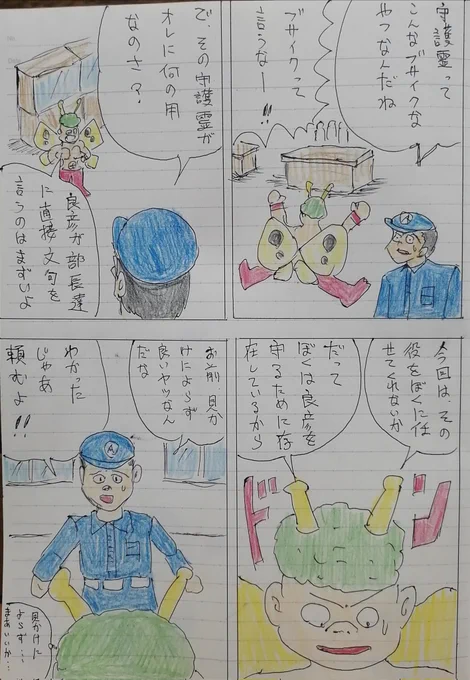 守護霊って
こんなブサイクな
やつなんだね
ブサイクって
言うなー!!
で、その守護霊が
オレに何の用
なのさ?
良彦が部長達
に直接文句を
言うのはまずいよ
今回は、その
役をぼくに任
せてくれないか
だって
ぼくは良彦を
守るために存
在しているから
ドン
お前、見か
けによらず
良いヤツなん
だな
わかった
じゃあ
頼むよ!!
見かけに
よらず…
まあいいか…
A
A